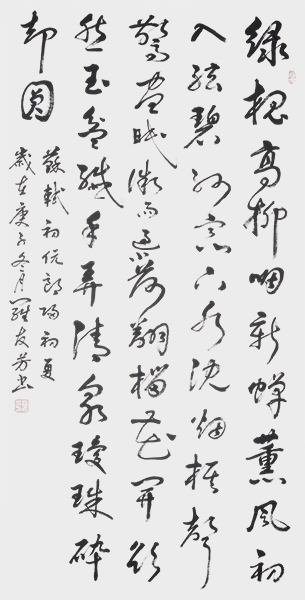 綠槐高柳咽新蟬薰風初
入弦碧紗窗下水沈烟棋聲
驚晝眠微雨過小荷翻榴花開欲
然玉盆纖手弄清泉瓊珠碎
却圓
蘇軾詞阮郎歸初夏
歲在庚子冬月羅友芳書